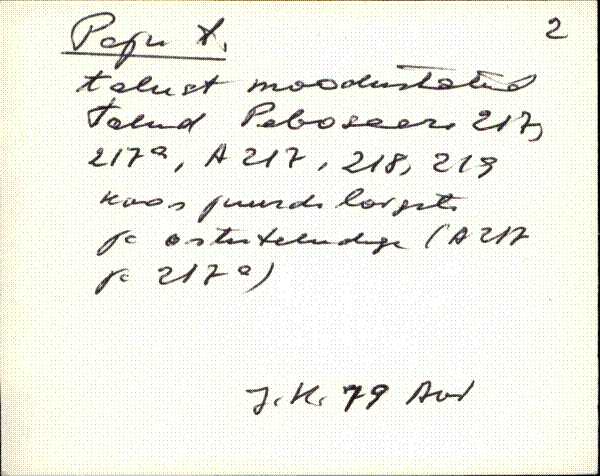 2
Papu t.
talust moodustatud
talud Pebosaare 217,
217ª, A 217, 218, 219
koos juurde
ja ostutaludega (A 217
ja 217ª)
J. K. 79 Aud